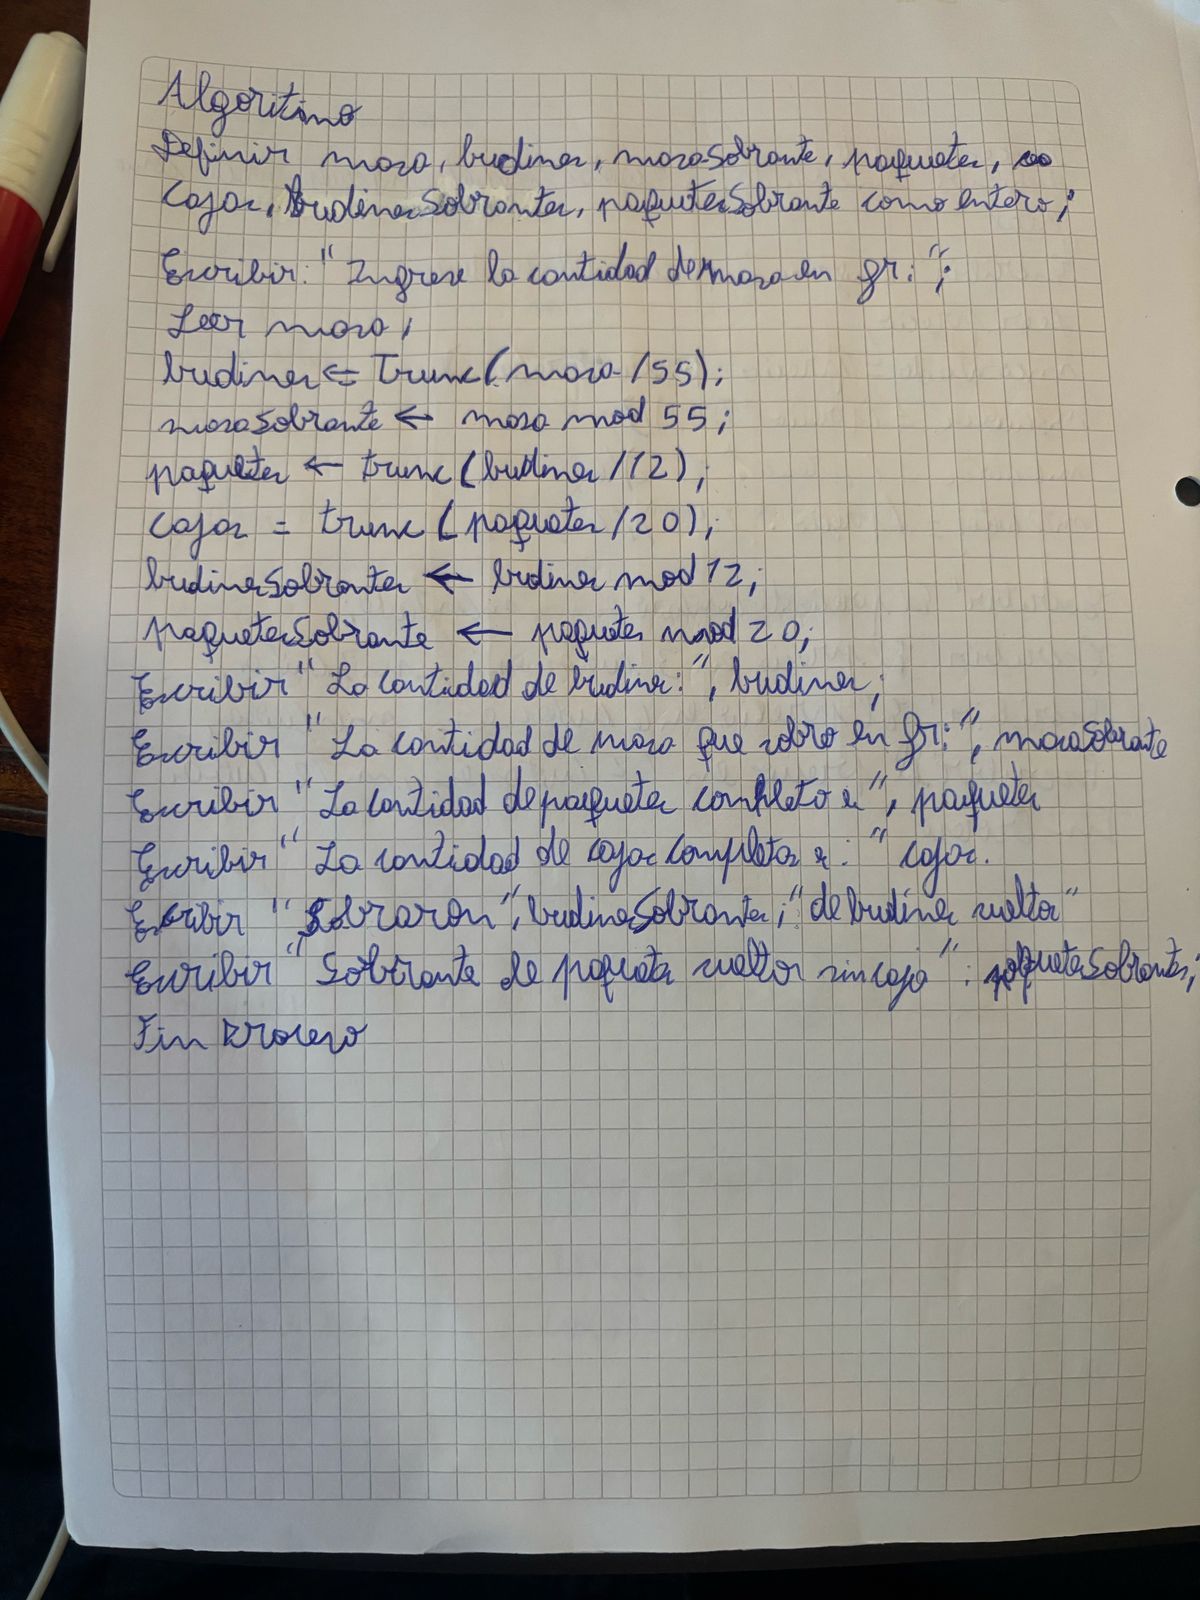 Algoritmo
Definir masa, budines, masaSobrante, paquetes,
cajas, budinesSobrantes, paquetesSobrante como entero;
Escribir: "Ingrese la cantidad de masa en gr: ";
Leer masa;
budines ⇐ Trunc(masa/55);
masaSobrante ← masa mod 55;
paquetes ← trunc(budines/12);
cajas = trunc(paquetes/20);
budinesSobrantes ← budines mod 12;
paquetesSobrante ← paquetes mod 20;
Escribir "La cantidad de budines: ", budines;
Escribir "La cantidad de masa que sobro en gr: ", masaSobrante
Escribir "La cantidad de paquetes completo es", paquetes
Escribir "La cantidad de cajas completas es: " cajas.
Escribir "Sobraron", budinesSobrantes; "de budines sueltos"
Escribir "Sobrante de paquetes sueltos sin caja": paquetesSobrantes;
Fin Proceso